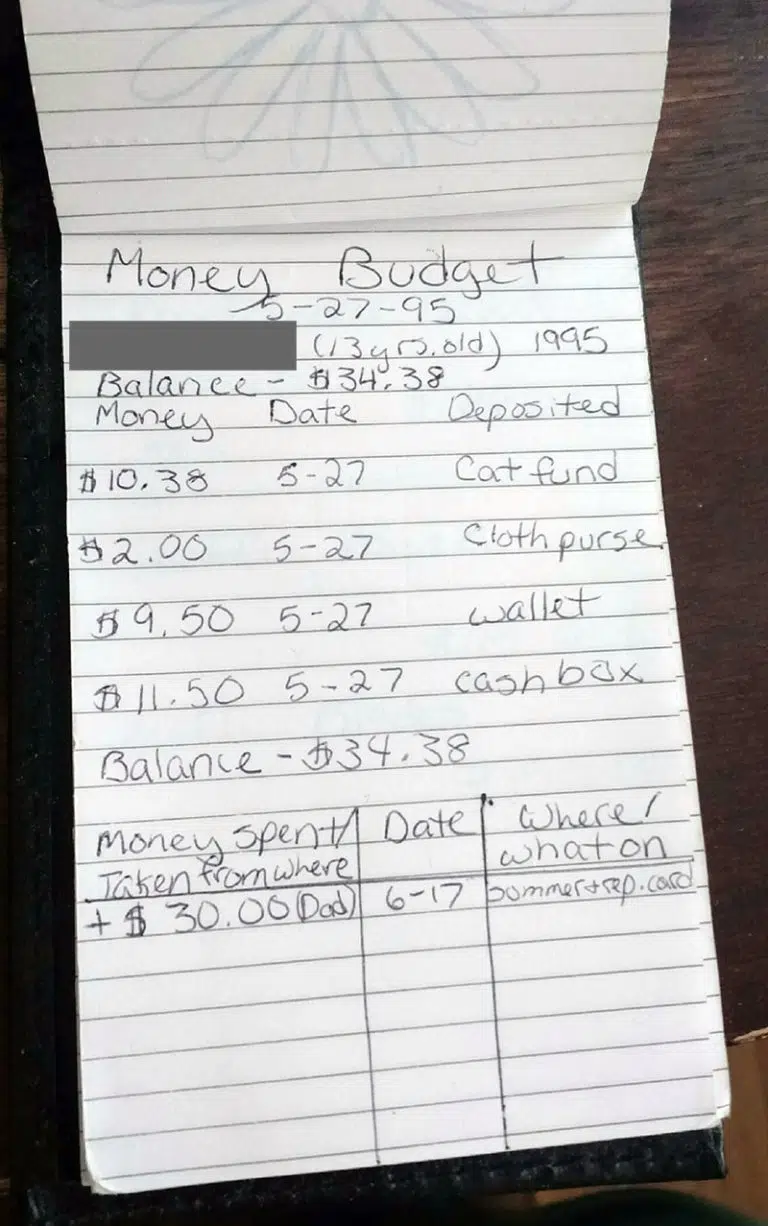 Money Budget
5-27-95
(13yrs.old) 1995
Balance - $34.38
Money Date Deposited
$10.38 5-27 Cat fund
$2.00 5-27 Cloth purse
$9.50 5-27 wallet
$11.50 5-27 cash box
Balance - $34.38
Money spent/ Date Where/
Taken from where what on
+ $30.00 (Dad) 6-17 rep.card